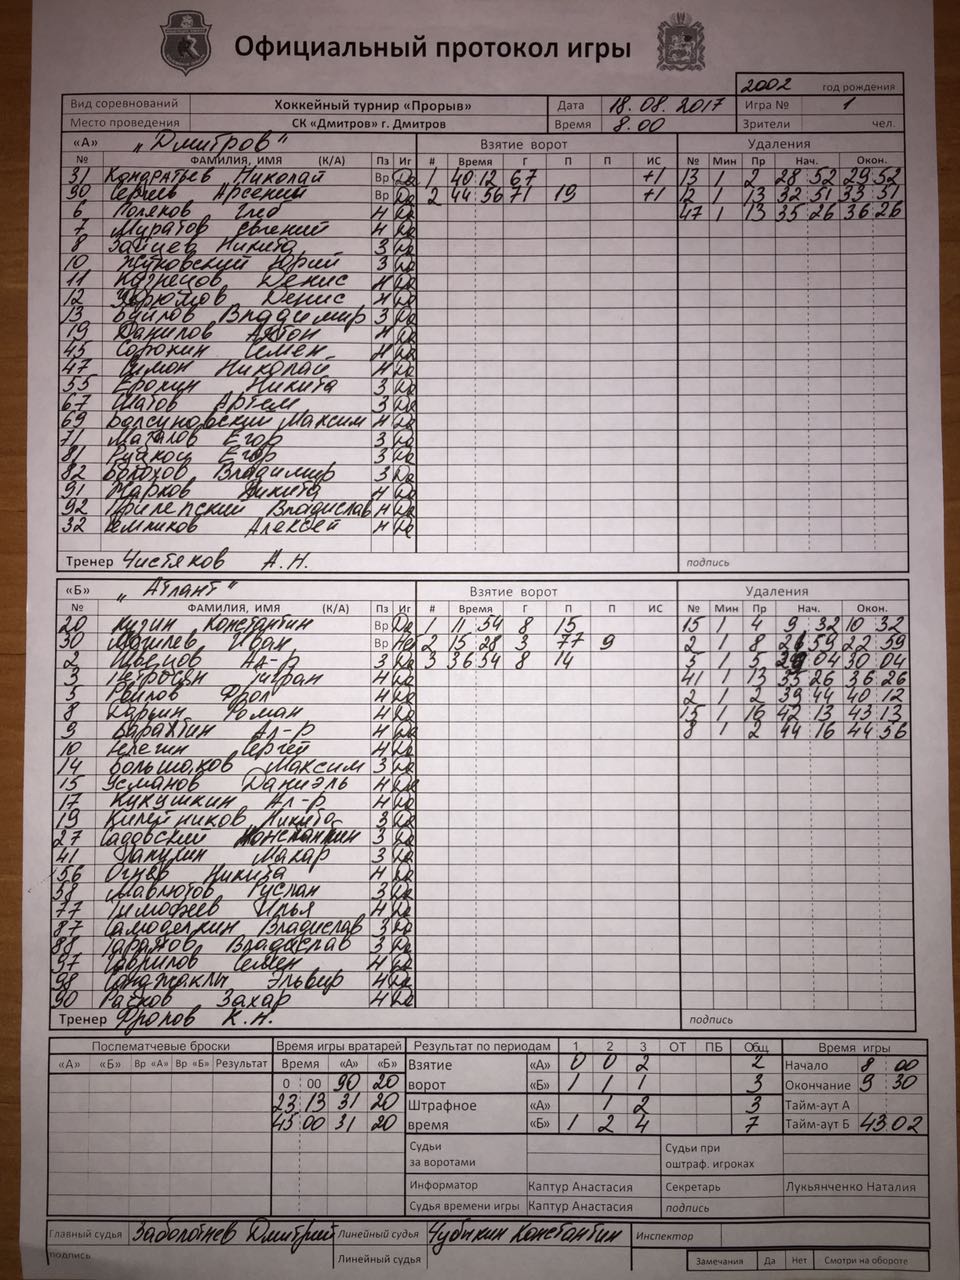 Официальный протокол игры
2002 год рождения
Вид соревнований Хоккейный турнир «Прорыв» Дата 18.08.2017 Игра № 1
Место проведения СК «Дмитров» г. Дмитров Время 8.00 Зрители чел.
«А» „Дмитров" Взятие ворот Удаления
№ ФАМИЛИЯ, ИМЯ (К/А) Пз Иг # Время Г П П ИС № Мин Пр Нач. Окон.
31 Кондратьев Николай Вр Да 1 40 12 67 +1 13 1 2 28 52 29 52
90 Сергеев Арсений Вр Да 2 44 56 71 19 +1 12 1 13 32 51 33 51
6 Поляков Глеб Н Да 47 1 13 35 26 36 26
7 Муратов Евгений Н Да
8 Зайцев Никита З Да
10 Жуковский Юрий З Да
11 Кузнецов Денис Н Да
12 Угрюмов Денис Н Да
13 Буйлов Владимир З Да
19 Данилов Антон Н Да
45 Сорокин Семен Н Да
47 Николай Н Да
55 Ерохин Никита З Да
67 Шатов Артем З Да
69 Болсуновский Максим Н Да
71 Маталов Егор З Да
81 Егор З Да
82 Болохов Владимир З Да
91 Марков Никита Н Да
92 Прилепский Владислав Н Да
32 Алексей Н Да
Тренер Чистяков А.Н. подпись
«Б» „Атлант" Взятие ворот Удаления
№ ФАМИЛИЯ, ИМЯ (К/А) Пз Иг # Время Г П П ИС № Мин Пр Нач. Окон.
20 Константин Вр Да 1 11 54 8 15 15 1 4 9 32 10 32
30 Иван Вр Нет 2 15 28 3 77 9 2 1 8 21 59 22 59
2 Цветков Ал-р З Да 3 36 54 8 14 5 1 5 29 04 30 04
3 Петросян Тигран Н Да 41 1 13 35 26 36 26
5 Фрол Н Да 2 1 2 39 44 40 12
8 Дарьин Роман Н Да 15 1 16 42 13 43 13
9 Барахтин Ал-р Н Да 8 1 2 44 16 44 56
10 Сергей Н Да
14 Большаков Максим З Да
15 Усманов Даниэль Н Да
17 Кукушкин Ал-р Н Да
19 Килейников Никита З Да
27 Садовский Константин З Да
41 Лапухин Макар З Да
56 Огнев Никита Н Да
58 Мавлютов Руслан З Да
77 Тимофеев Илья Н Да
87 Самоделкин Владислав З Да
88 Таратов Владислав З Да
97 Гаврилов Семен Н Да
98 Эльвир Н Да
90 Захар Н Да
Тренер Фролов К.Н. подпись
Послематчевые броски Время игры вратарей Результат по периодам 1 2 3 ОТ ПБ Общ Время игры
«А» «Б» Вр «А» Вр «Б» Результат Время «А» «Б» Взятие «А» 0 0 2 2 Начало 8 00
0 00 90 20 ворот «Б» 1 1 1 3 Окончание 9 30
23 13 31 20 Штрафное «А» 1 2 3 Тайм-аут А
45 00 31 20 время «Б» 1 2 4 7 Тайм-аут Б 43 02
Судьи за воротами Судьи при оштраф. игроках
Информатор Каптур Анастасия Секретарь Лукьянченко Наталия
Судья времени игры Каптур Анастасия подпись
Главный судья Заболотнев Дмитрий Линейный судья Чубыкин Константин Инспектор
подпись Линейный судья Замечания Да Нет Смотри на обороте